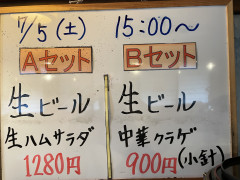 7/5(土) 15:00〜
Aセット Bセット
生ビール 生ビール
生ハムサラダ 中華クラゲ
1280円 900円(小針)